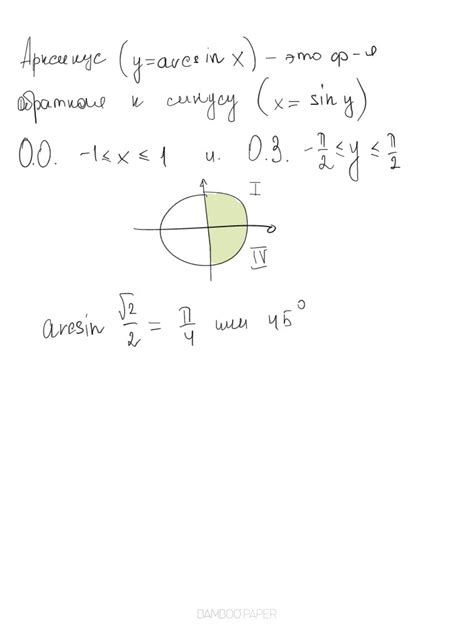 Арксинус (y=arcsin x) – это ф-я
обратная к синусу (x= sin y)
О.О. -1 ≤ x ≤ 1 и О.З. -π/2 ≤ y ≤ π/2
I
IV
arcsin √2/2 = π/4 или 45°
BAMBOO PAPER